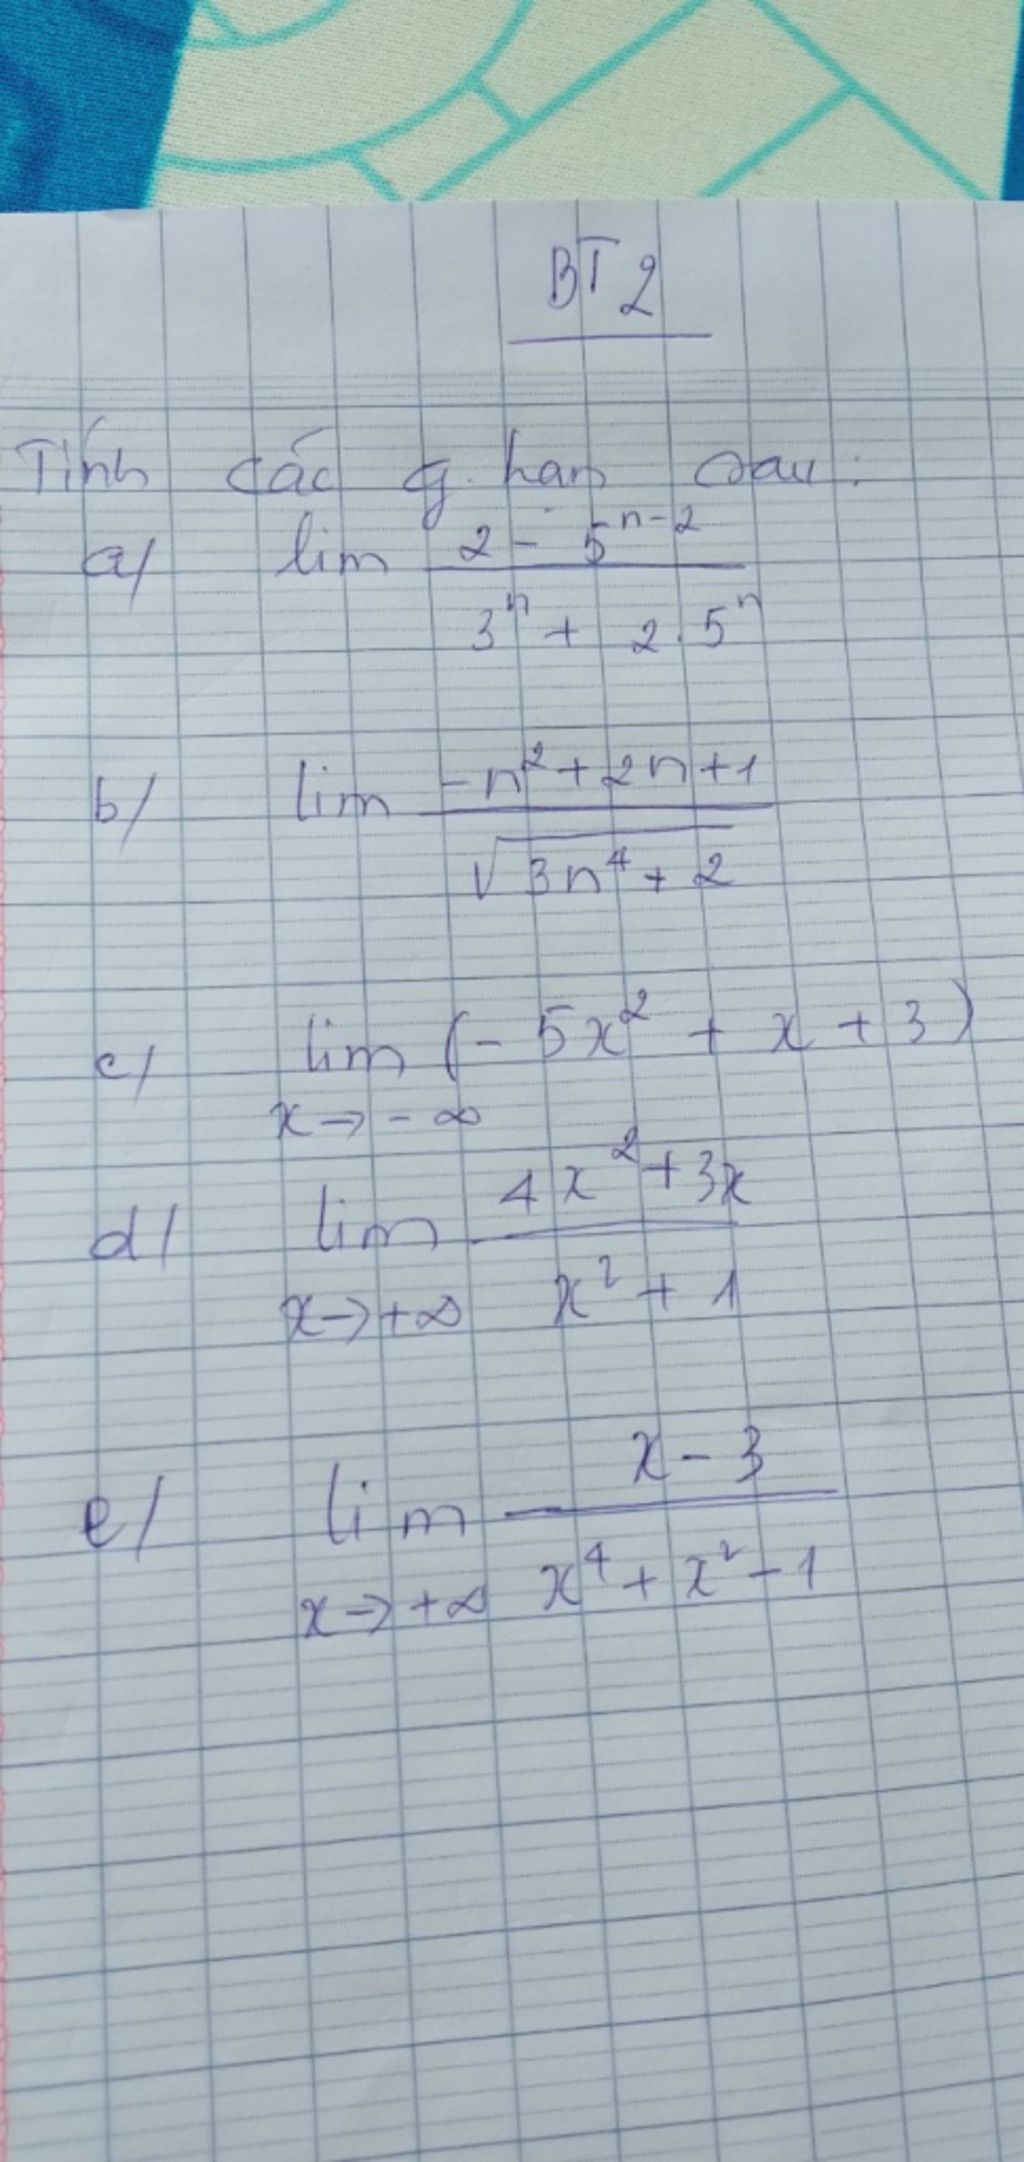 BT2
Tính các g.hạn sau:
a/ lim (2 - 5^(n-2)) / (3^n + 2.5^n)
b/ lim (-n² + 2n + 1) / √(3n⁴ + 2)
c/ lim (- 5x² + x + 3)
x → - ∞
d/ lim (4x² + 3x) / (x² + 1)
x → +∞
e/ lim (x - 3) / (x⁴ + x² - 1)
x → +∞